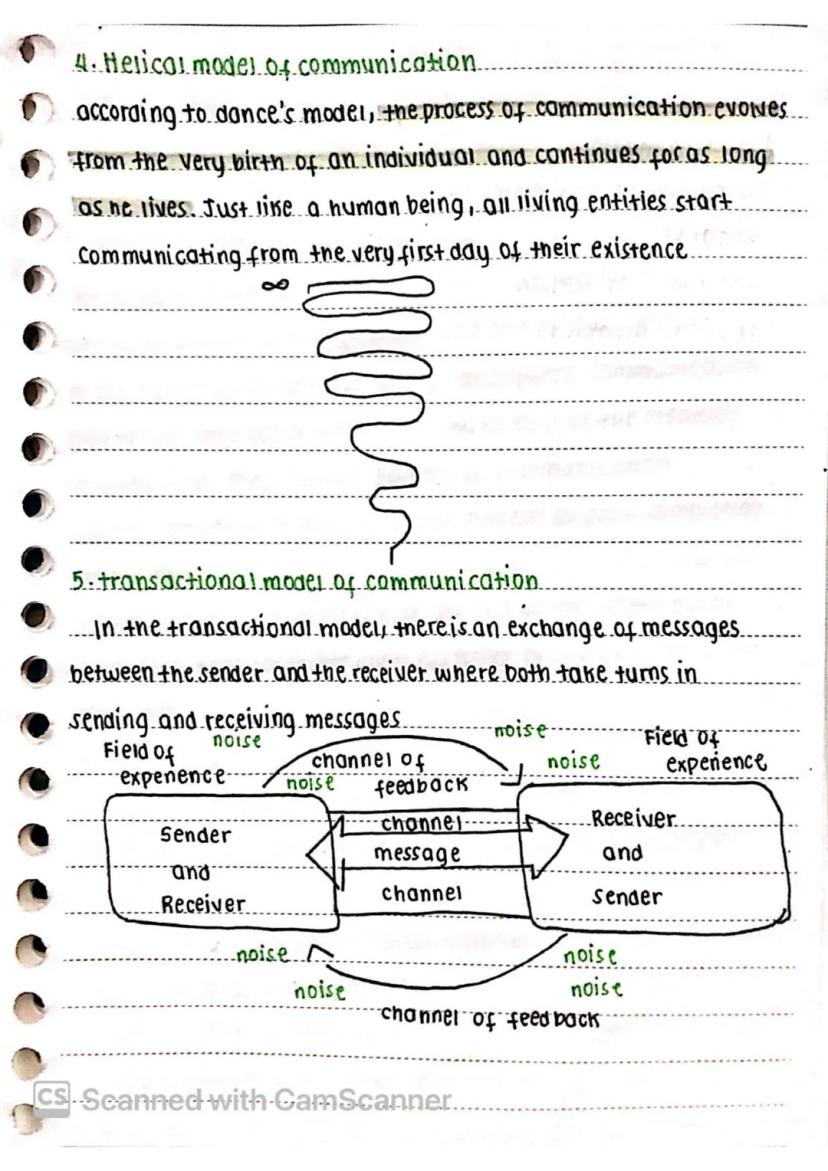 4. Helical model of communication
according to dance's model, the process of communication evolves
from the very birth of an individual and continues for as long
as he lives. Just like a human being, all living entities start
communicating from the very first day of their existence
∞
5. transactional model of communication
In the transactional model, there is an exchange of messages
between the sender and the receiver where both take turns in
sending and receiving messages
noise
noise
Field of
experience
noise
channel of
feedback
noise
Field of
experience
Sender
and
Receiver
channel
message
channel
Receiver
and
sender
noise
noise
noise
noise
channel of feedback
CS Scanned with CamScanner